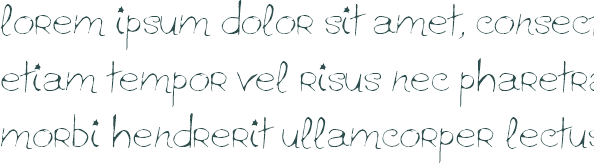 lorem ipsum dolor sit amet, consect
etiam tempor vel risus nec pharetra
morbi hendrerit ullamcorper lectus